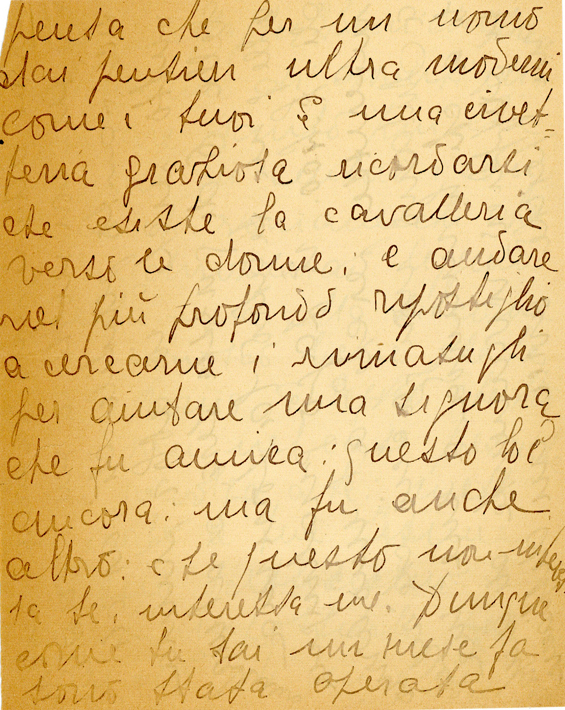 pensa che per un uomo
dai pensieri ultra moderni
come i tuoi è una civet=
teria graziosa ricordarsi
che esiste la cavalleria
verso le donne, e andare
nel più profondo ripostiglio
a cercarne i rimasugli
per aiutare una signora
che fu amica: questo lo è
ancora: ma fu anche
altro: e se questo non interes
sa te, interessa me. Dunque
come tu sai un mese fa
sono stata operata